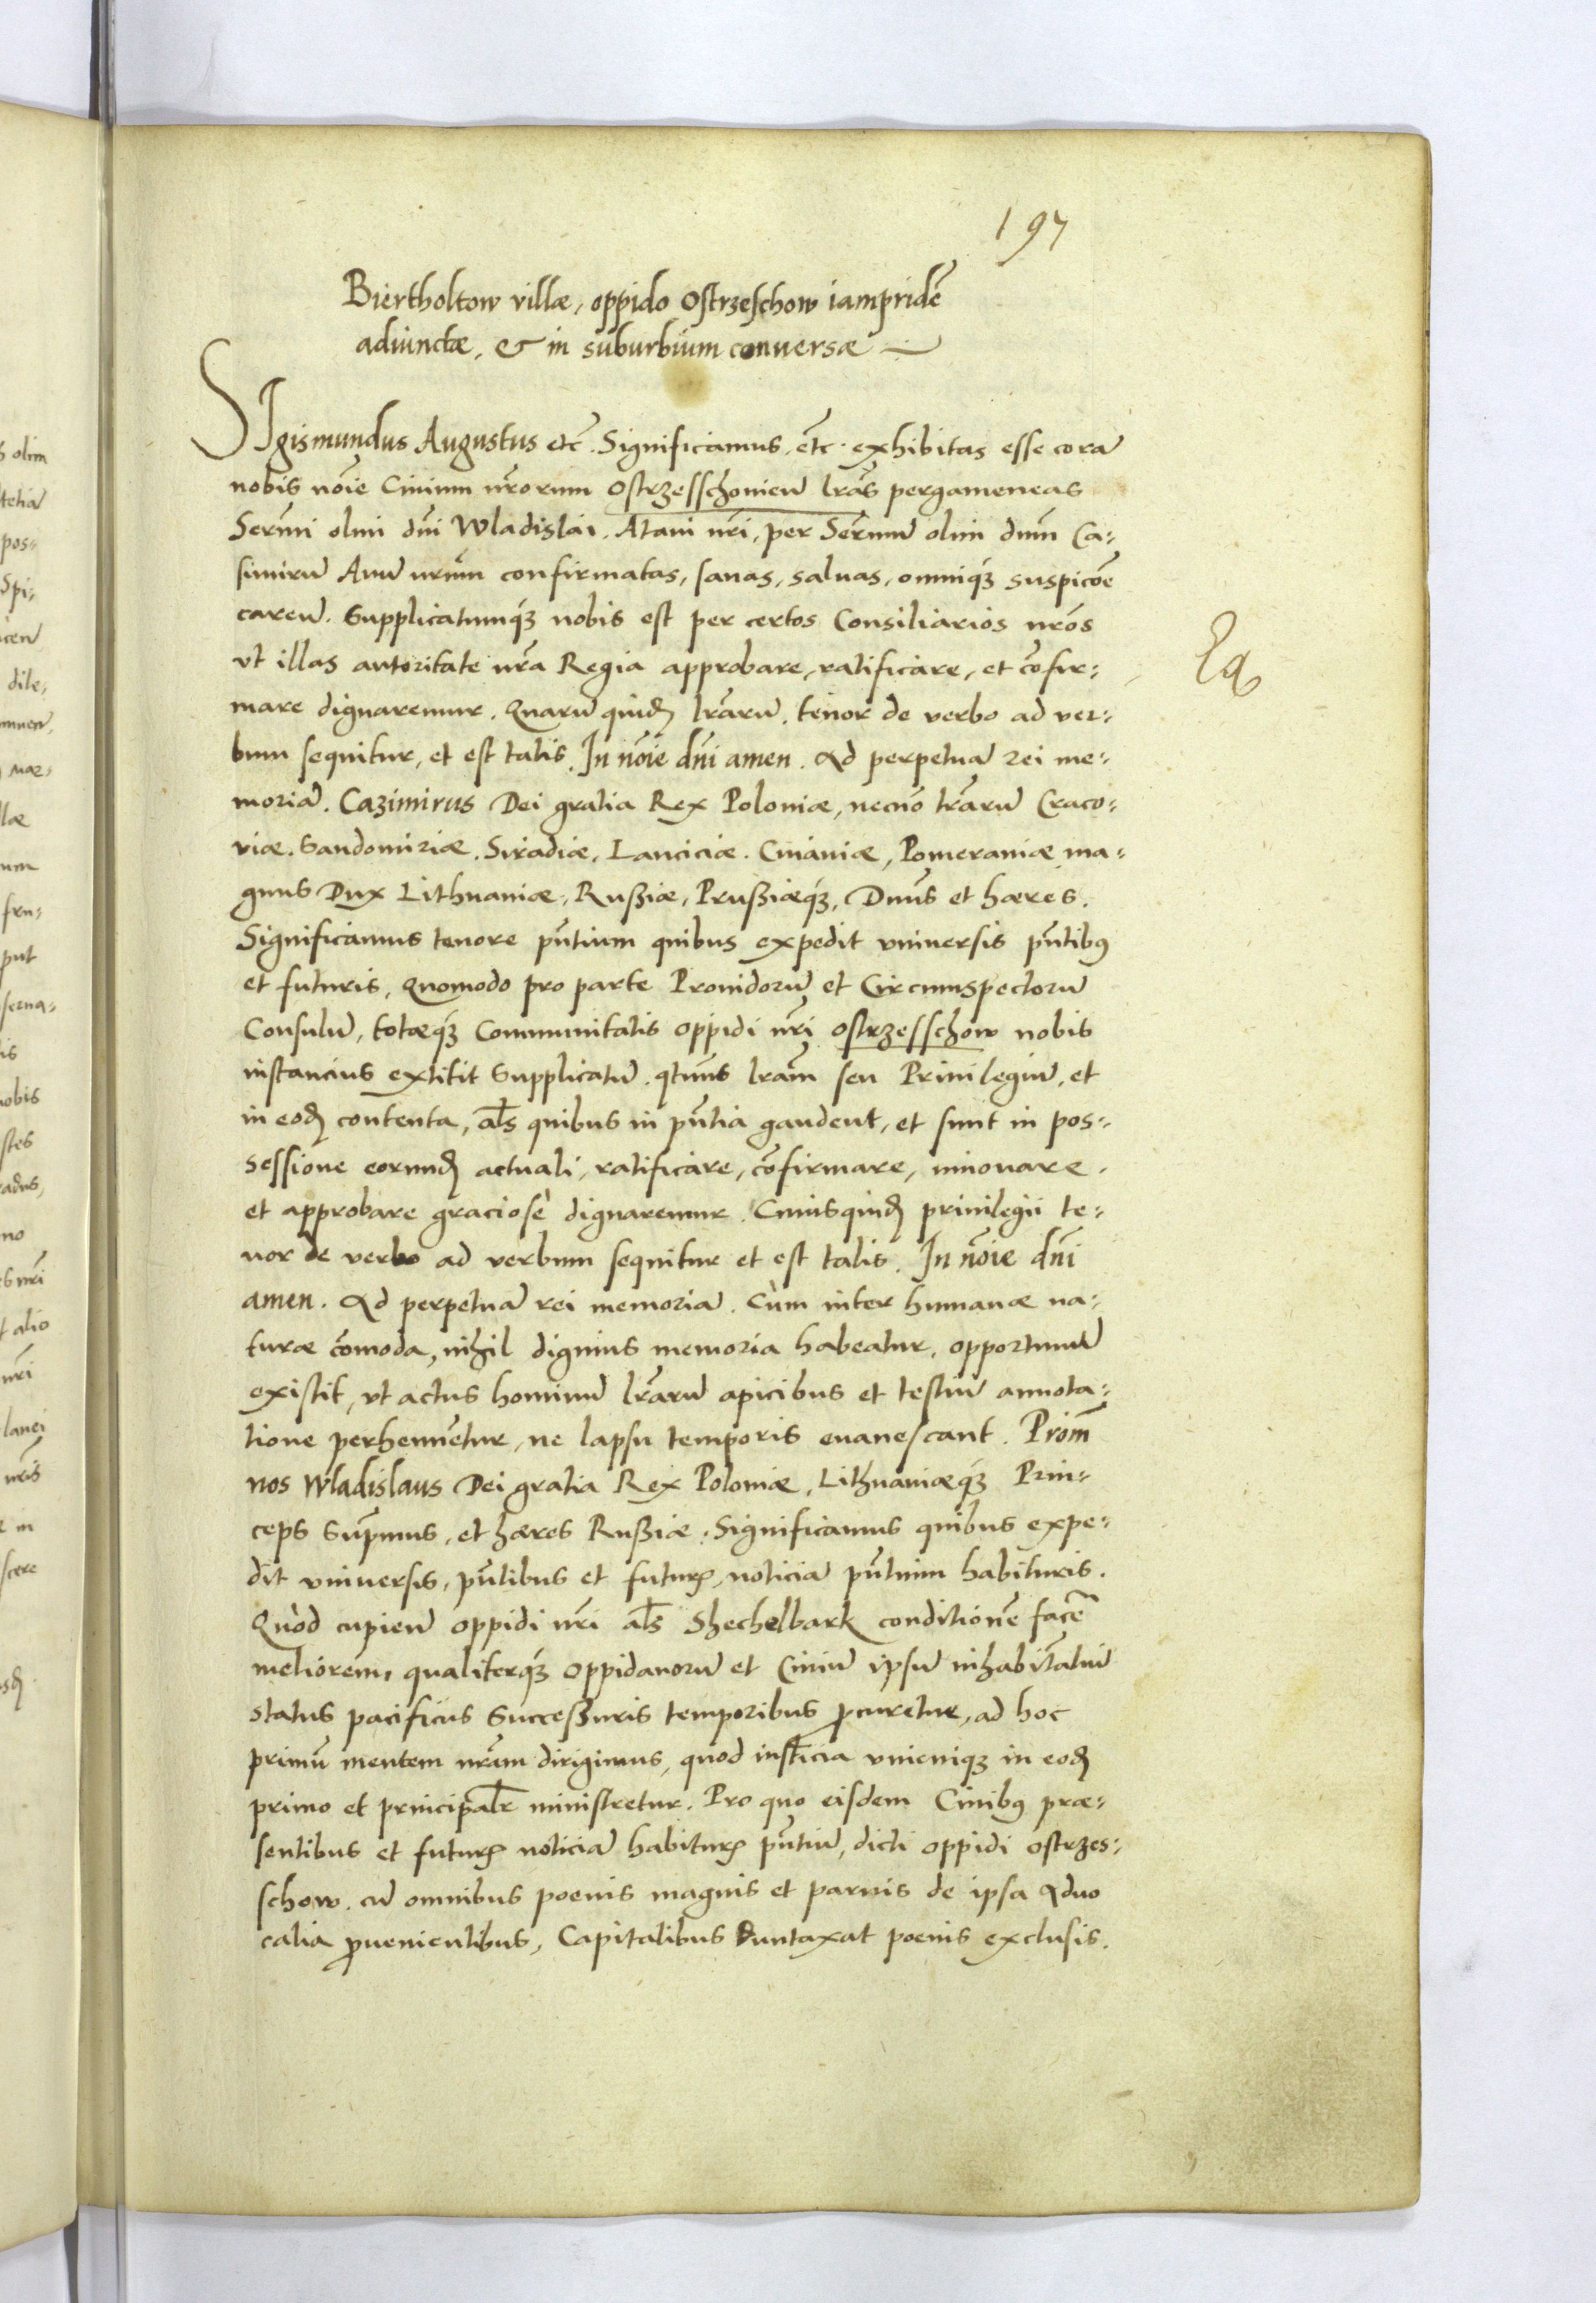 197
Biertholtow villæ, oppido Ostrzeschow iampridē
adiunctæ, & in suburbium conuersæ
SIgismundus Augustus etc̄. Significamus, etc̄. exhibitas esse corā
nobis nōie Ciuium nr̄orum Ostrzesschouieñ lrās pergameneas
Serm̄i olim dn̄i Wladislai, Ataui nr̄i, per Serm̄ū olim dnm̄ Ca-
simirū Auū nrūm confirmatas, sanas, saluas, omniq́ꝫ suspicōe
careñ. Supplicatumq́ꝫ nobis est per certos Consiliarios nrōs
vt illas autoritate nr̄a Regia approbare, ratificare, et cōfir-
mare dignaremur. Quarū quidꝫ lrārū, tenor de verbo ad ver-
bum sequitur, et est talis. In nōie dn̄i amen. Ad perpetuā rei me-
moriā. Cazimirus Dei gratia Rex Poloniæ, necnō trārū Craco-
viæ, Sandomiriæ, Siradiæ, Lanciciæ, Cuiauiæ, Pomeraniæ, ma-
gnus Dux Lithuaniæ, Rußiæ, Prußiæq́ꝫ, Dnūs et hæres.
Significamus tenore pn̄tium quibus expedit vniuersis pn̄tibꝰ
et futuris, Quomodo pro parte Prouidorū et Circumspectorū
Consulū, totæq́ꝫ Communitatis oppidi nr̄i Ostrzesschow nobis
instancius extitit Supplicatū, qtn̄us lrām seu Priuilegiū, et
in eodꝫ contenta, als̄ quibus in pn̄tia gaudent, et sunt in pos-
sessione eorundꝫ actuali, ratificare, cōfirmare, innouare,
et approbare graciosè dignaremur. Cuiusquidꝫ priuilegii te-
nor de verbo ad verbum sequitur et est talis. In nōie dn̄i
amen. Ad perpetuā rei memoriā. Cùm inter humanæ na-
turæ cōmoda, nihil dignius memoria habeatur, opportunū
existit, vt actus hominū lrārū apicibus et testiū annota-
tione perhennētur, ne lapsu temporis euanescant. Proin̄
nos Wladislaus Dei gratia Rex Poloniæ, Lithuaniæq́ꝫ Prin-
ceps Supm̄us, et hæres Rußiæ. Significamus quibus expe-
dit vniuersis, pn̄tibus et futurꝭ, noticiā pn̄tium habituris.
Quòd cupieñ oppidi nr̄i als̄ Shechelbark conditionē facē
meliorem, qualiterq́ꝫ oppidanorū et Ciuiū ipsū inhabitātiū
status pacificus Succeßuris temporibus ꝓcuretur, ad hoc
primū mentem nrām dirigimus, quod iusticia vnicuiqꝫ in eodꝫ
primo et principalr̄ ministretur. Pro quo eisdem Ciuibꝰ præ-
sentibus et futurꝭ noticiā habiturꝭ pn̄tiū, dicti oppidi Ostrzes-
schow, cū omnibus poenis magnis et paruis de ipsa Aduo
catia ꝓuenientibus, Capitalibus Duntaxat poenis exclusis.